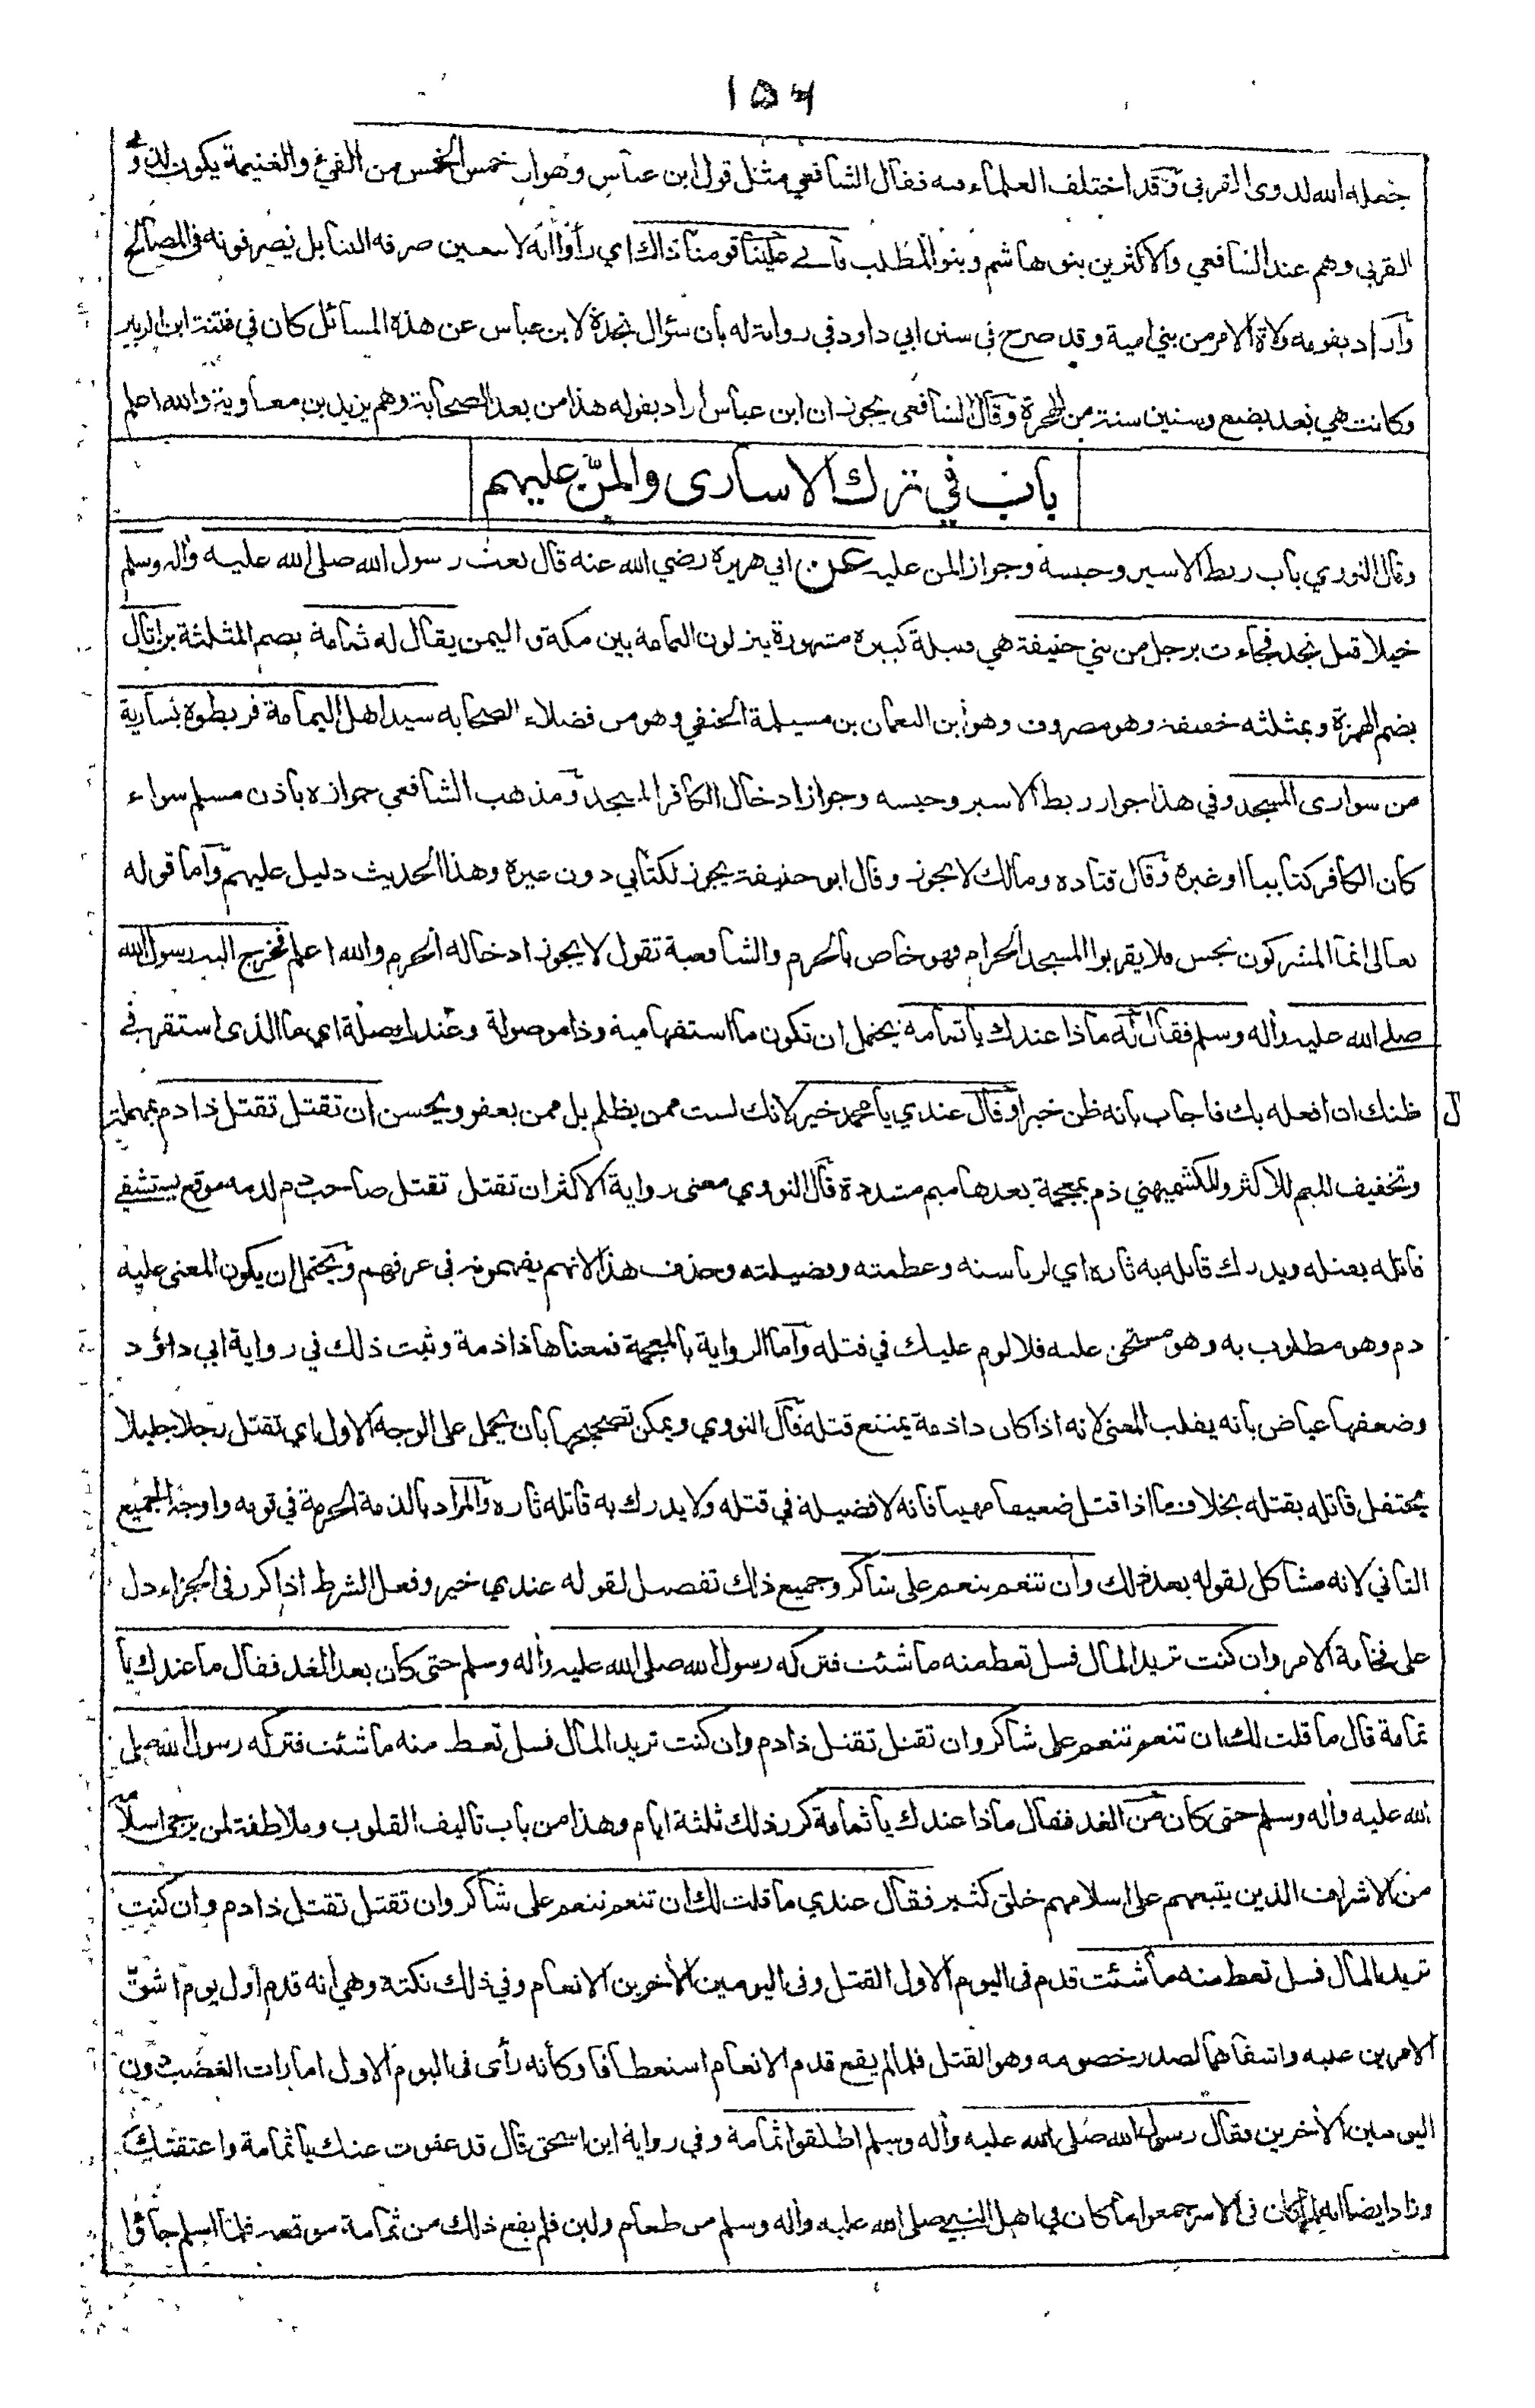 ١٥٦
جعله الله لذوى القربى وقد اختلف العلماء فيه فقال الشافعي مثل قول ابن عباس وهو ان خمس الخمس من الفئ والغنيمة يكون لذوى
القربى وهم عند الشافعي والاكثرين بنو هاشم وبنو المطلب فأبى علينا قومنا ذاك اي رأوا انه لا يتعين صرفه الينا بل يصرفونه فى المصالح
وأراد بقومه ولاة الامر من بني امية وقد صرح فى سنن ابي داود في رواية له بأن سؤال نجدة لابن عباس عن هذه المسائل كان في فتنة ابن الزبير
وكانت هي بعد بضع وستين سنة من الهجرة وقال الشافعي يجوز ان ابن عباس اراد بقوله هذا من بعد الصحابة وهم يزيد بن معاوية والله اعلم
باب في ترك الاسارى والمنّ عليهم
وقال النووي باب ربط الاسير وحبسه وجواز المن عليه عن ابي هريرة رضي الله عنه قال بعث رسول الله صلى الله عليه وأله وسلم
خيلا قبل نجد فجاءت برجل من بني حنيفة هي قبيلة كبيرة مشهورة ينزلون اليمامة بين مكة و اليمن يقال له ثمامة بضم المثلثة بن اثال
بضم الهمزة وبمثلثه خفيفة وهو مصروف وهو ابن النعمان بن مسيلمة الحنفي وهو من فضلاء الصحابه سيد اهل اليمامة فربطوه بسارية
من سوارى المسجد وفي هذا جواز ربط الاسير وحبسه وجواز ادخال الكافر المسجد ومذهب الشافعي جوازه باذن مسلم سواء
كان الكافر كتابيا او غيره وقال قتاده ومالك لا يجوز وقال ابو حنيفة يجوز لكتابي دون غيره وهذا الحديث دليل عليهم وأما قوله
تعالى انما المشركون نجس فلا يقربوا المسجد الحرام فهو خاص بالحرم والشافعية تقول لا يجوز ادخاله الحرم والله اعلم فخرج اليه رسول الله
صلى الله عليه وأله وسلم فقال له ماذا عندك يا ثمامة يحتمل ان تكون ما استفهامية وذا موصولة وعندك صلة اي ما الذى استقر في
ظنك ان افعله بك فاجاب بانه ظن خيرا وقال عندي يا محمد خير لانك لست ممن يظلم بل ممن يعفو ويحسن ان تقتل تقتل ذا دم بمهملة
وتخفيف الميم للاكثر وللكشميهني ذم بمعجمة بعدها ميم مشددة قال النووي معنى رواية الاكثر ان تقتل تقتل صاحب دم لدمه موقع يستشفي
قاتله بقتله ويدرك قاتله به ثاره اي لرياسته وعظمته وفضيلته وحذف هذا لانهم يفهمونه فى عرفهم ويحتمل ان يكون المعنى عليه
دم وهو مطلوب به وهو مستحق عليه فلا لوم عليك في قتله وأما الرواية بالمعجمة فمعناها ذا ذمة وثبت ذلك في رواية ابي داؤد
وضعفها عياض بأنه يقلب المعنى لانه اذا كان ذا ذمة يمتنع قتله قال النووي ويمكن تصحيحها بان يحمل على الوجه الاول اي تقتل رجلا جليلا
يحتفل قاتله بقتله بخلاف ما اذا قتل ضعيفا مهينا فانه لا فضيلة في قتله ولا يدرك به قاتله ثاره والمراد بالذمة الحرمة في قومه واوجه الجميع
الثاني لانه مشاكل لقوله بعد ذلك وأن تنعم تنعم على شاكر وجميع ذلك تفصيل لقوله عندي خير وفعل الشرط اذا كرر فى الجزاء دل
على فخامة الامر وان كنت تريد المال فسل تعط منه ما شئت فتركه رسول الله صلى الله عليه وأله وسلم حتى كان بعد الغد فقال ما عندك يا
ثمامة قال ما قلت لك ان تنعم تنعم على شاكر وان تقتل تقتل ذا دم وان كنت تريد المال فسل تعط منه ما شئت فتركه رسول الله صلى
الله عليه وأله وسلم حتى كان من الغد فقال ماذا عندك يا ثمامة كرر ذلك ثلثة ايام وهذا من باب تاليف القلوب وملاطفة لمن يرجى اسلامه
من الاشراف الذين يتبعهم على اسلامهم خلق كثير فقال عندي ما قلت لك ان تنعم تنعم على شاكر وان تقتل تقتل ذا دم وان كنت
تريد المال فسل تعط منه ما شئت قدم فى اليوم الاول القتل وفى اليومين الأخرين الانعام وفي ذلك نكتة وهي أنه قدم اول يوم اشق
الامرين عليه واشفاهما لصدر خصومه وهو القتل فلما لم يقع قدم الانعام استعطافا وكأنه رأى فى اليوم الاول امارات الغضب دون
اليومين الأخرين فقال رسول الله صلى الله عليه وأله وسلم اطلقوا ثمامة وفي رواية ابن اسحق قال قد عفوت عنك يا ثمامة واعتقتك
وزاد ايضا انه لما كان فى الاسر جمعوا ما كان في اهل النبي صلى الله عليه وأله وسلم من طعام ولبن فلم يقع ذلك من ثمامة موقعه فلما اسلم جاؤا